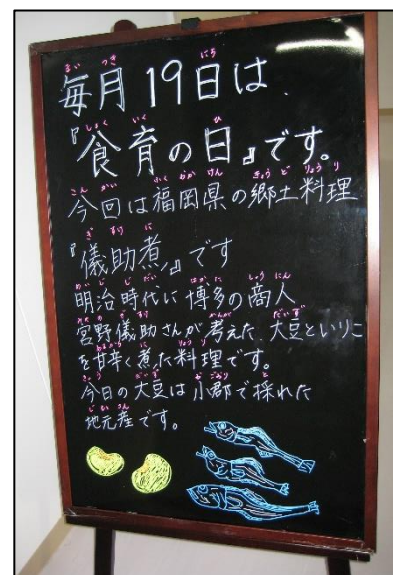 毎月19日は、
『食育の日』です。
今回は福岡県の郷土料理
『儀助煮』です
明治時代に博多の商人
宮野儀助さんが考えた、大豆といりこ
を甘辛く煮た料理です。
今日の大豆は小郡で採れた
地元産です。